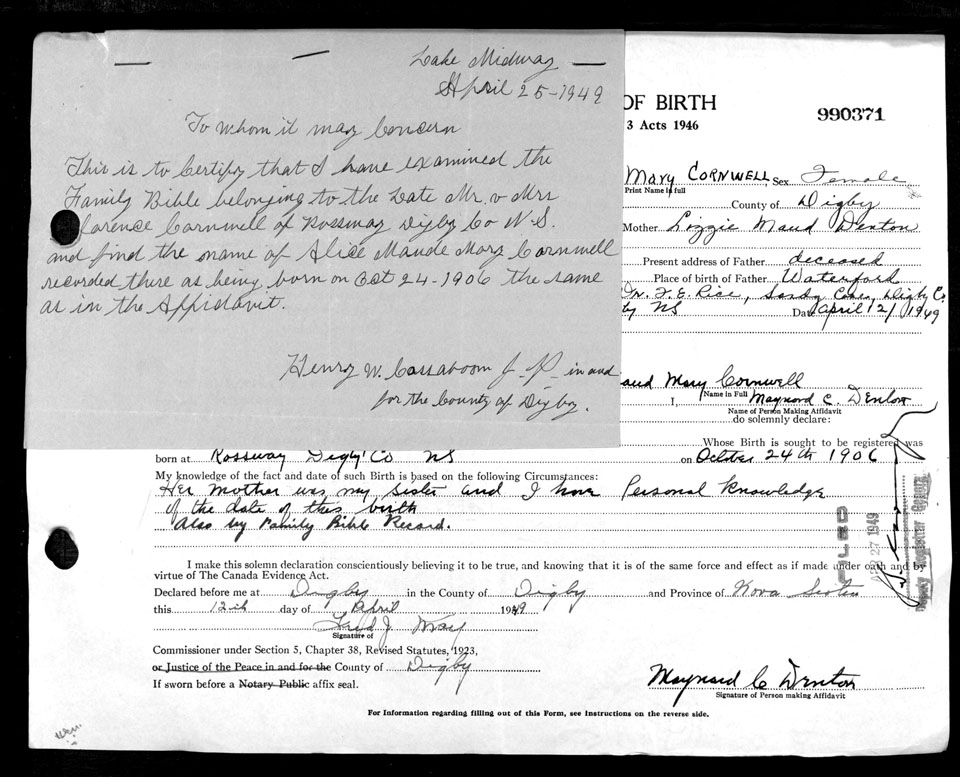 Lake Midway
April 25-1949
To whom it may Concern
This is to Certify that I have examined the
Family Bible belonging to the Late Mr. & Mrs
larence Cornwell of Rossway Digby Co N.S.
and find the name of Alice Maude Mary Cornwell
recorded there as being born on Oct 24-1906 the same
as in the Affidavit.
Henry W. Cossaboom J-P- in and
for the County of Digby.
OF BIRTH
3 Acts 1946
990371
Mary CORNWELL, Sex Female
Print Name in full
County of Digby
Mother Lizzie Maud Denton
Present address of Father deceased
Place of birth of Father Waterford
Dr. F. E. Rice, Sandy Cove, Digby Co.
by NS Date April 12/1949
aud Mary Cornwell
Name in Full
I, Maynard C. Denton
Name of Person Making Affidavit
do solemnly declare:
Whose Birth is sought to be registered was
born at Rossway Digby Co NS on October 24th 1906
My knowledge of the fact and date of such Birth is based on the following Circumstances:
Her mother was my sister and I have Personal Knowledge
of the date of this birth
Also by Family Bible Record.
I make this solemn declaration conscientiously believing it to be true, and knowing that it is of the same force and effect as if made under oath and by
virtue of The Canada Evidence Act.
Declared before me at Digby in the County of Digby and Province of Nova Scotia
this 12th day of April 1949
Fred J. May
Signature of
Commissioner under Section 5, Chapter 38, Revised Statutes, 1923,
or Justice of the Peace in and for the County of Digby
If sworn before a Notary Public affix seal.
Maynard C Denton
Signature of Person making Affidavit
For Information regarding filling out of this Form, see Instructions on the reverse side.
FILED
APR 27 1949
Deputy Registrar General